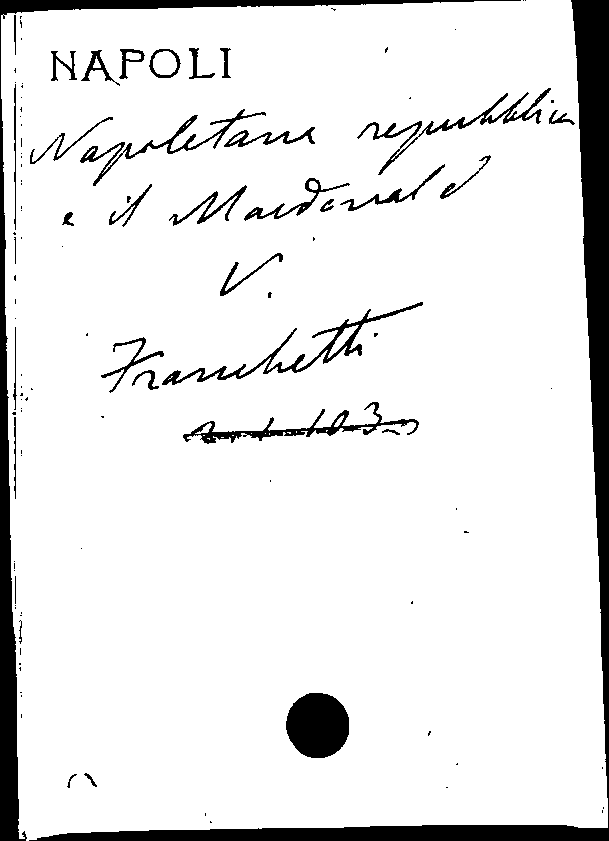 NAPOLI
Napoletana repubblica
e il Macdonald
V.
Franchetti